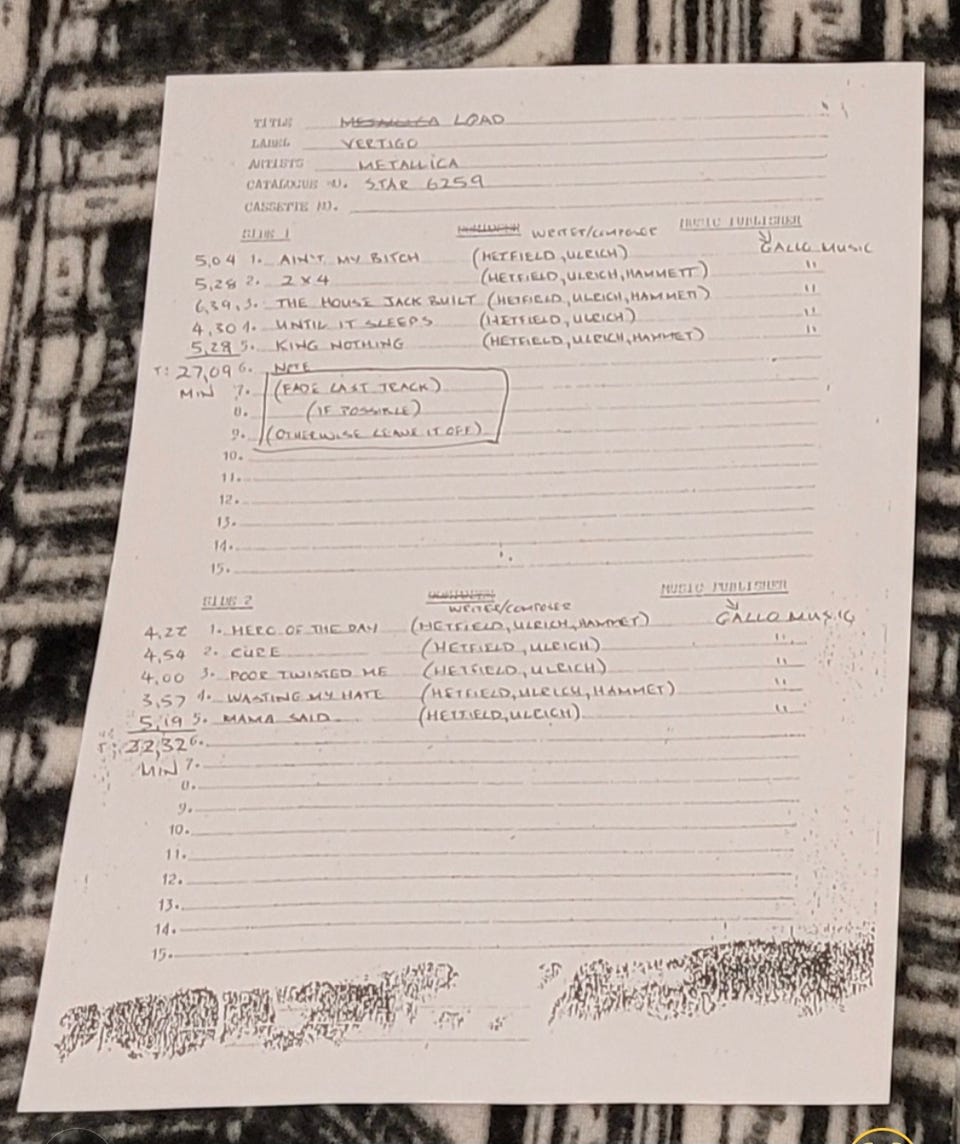 TITLE METALLICA LOAD
LABEL VERTIGO
ARTISTS METALLICA
CATALOGUE NO. STAR 6259
CASSETTE NO.
SIDE 1 WRITER/COMPOSER MUSIC PUBLISHER
5,04 1. AIN'T MY BITCH (HETFIELD, ULRICH) GALLO MUSIC
5,28 2. 2 X 4 (HETFIELD, ULRICH, HAMMETT) "
6,39, 3. THE HOUSE JACK BUILT (HETFIELD, ULRICH, HAMMETT) "
4,30 4. UNTIL IT SLEEPS (HETFIELD, ULRICH) "
5,28 5. KING NOTHING (HETFIELD, ULRICH, HAMMET) "
T: 27,09 6. NOTE
MIN 7. (FADE LAST TRACK)
8. (IF POSSIBLE)
9. (OTHERWISE LEAVE IT OFF)
10.
11.
12.
13.
14.
15.
SIDE 2 MUSIC PUBLISHER
WRITER/COMPOSER
4,22 1. HERO OF THE DAY (HETFIELD, ULRICH, HAMMET) GALLO MUSIC
4,54 2. CURE (HETFIELD, ULRICH) "
4,00 3. POOR TWISTED ME (HETFIELD, ULRICH) "
3,57 4. WASTING MY HATE (HETFIELD, ULRICH, HAMMET) "
5,19 5. MAMA SAID (HETFIELD, ULRICH) "
T: 22,32 6.
MIN 7.
8.
9.
10.
11.
12.
13.
14.
15.